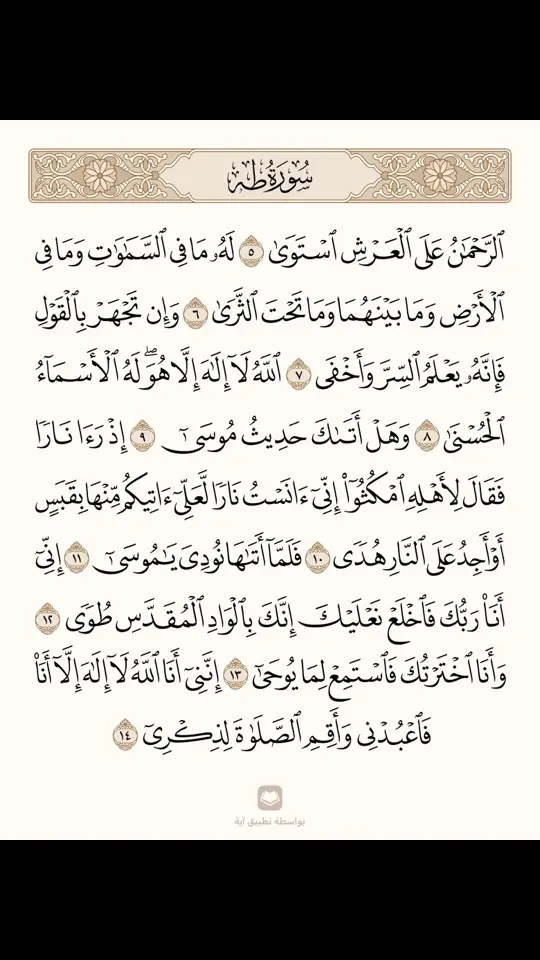 سُورَةُ طه
ٱلرَّحْمَٰنُ عَلَى ٱلْعَرْشِ ٱسْتَوَىٰ ٥ لَهُۥ مَا فِى ٱلسَّمَٰوَٰتِ وَمَا فِى
ٱلْأَرْضِ وَمَا بَيْنَهُمَا وَمَا تَحْتَ ٱلثَّرَىٰ ٦ وَإِن تَجْهَرْ بِٱلْقَوْلِ
فَإِنَّهُۥ يَعْلَمُ ٱلسِّرَّ وَأَخْفَى ٧ ٱللَّهُ لَآ إِلَٰهَ إِلَّا هُوَ ۖ لَهُ ٱلْأَسْمَآءُ
ٱلْحُسْنَىٰ ٨ وَهَلْ أَتَىٰكَ حَدِيثُ مُوسَىٰٓ ٩ إِذْ رَءَا نَارًا
فَقَالَ لِأَهْلِهِ ٱمْكُثُوٓا۟ إِنِّىٓ ءَانَسْتُ نَارًا لَّعَلِّىٓ ءَاتِيكُم مِّنْهَا بِقَبَسٍ
أَوْ أَجِدُ عَلَى ٱلنَّارِ هُدًى ١٠ فَلَمَّآ أَتَىٰهَا نُودِىَ يَٰمُوسَىٰٓ ١١ إِنِّىٓ
أَنَا۠ رَبُّكَ فَٱخْلَعْ نَعْلَيْكَ إِنَّكَ بِٱلْوَادِ ٱلْمُقَدَّسِ طُوًى ١٢
وَأَنَا ٱخْتَرْتُكَ فَٱسْتَمِعْ لِمَا يُوحَىٰٓ ١٣ إِنَّنِىٓ أَنَا ٱللَّهُ لَآ إِلَٰهَ إِلَّآ أَنَا۠
فَٱعْبُدْنِى وَأَقِمِ ٱلصَّلَوٰةَ لِذِكْرِىٓ ١٤
بواسطة تطبيق آية